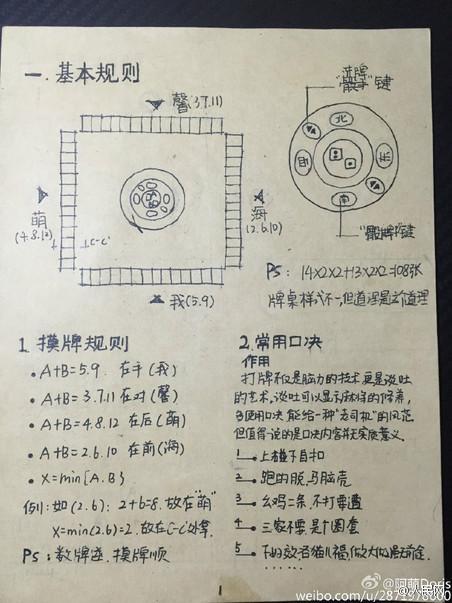 一.基本规则
馨(3.7.11)
萌
(4.8.12)
海
(2.6.10)
我(5.9)
C-C'
"骰子"键
北
东
南
西
"骰牌"键
PS: 14×2×2+13×2×2=108张
牌桌样式不一,但道理是这个道理
1. 摸牌规则
A+B=5.9 在手(我)
A+B=3.7.11 在对(馨)
A+B=4.8.12 在后(萌)
A+B=2.6.10 在前(海)
X=min{A.B}
例:如(2.6): 2+6=8.放在"萌"
X=min(2.6)=2.放在C-C'处拿.
PS: 数牌逆.摸牌顺
2.常用口决
作用
打牌不仅是脑力的技术,更是谈吐
的艺术,谈吐可以显示麻样的修养,
多使用口决能给一种"老司机"的风范
但值得一说的是口决内容并无实质意义.
1 上碰不自扣
2 跑的脱,马脑壳
3 幺鸡二条,不打要遭
4 三家不要,是个圈套
5
......
1
@阿萌Doris
weibo.com/u/2874976800
人民网